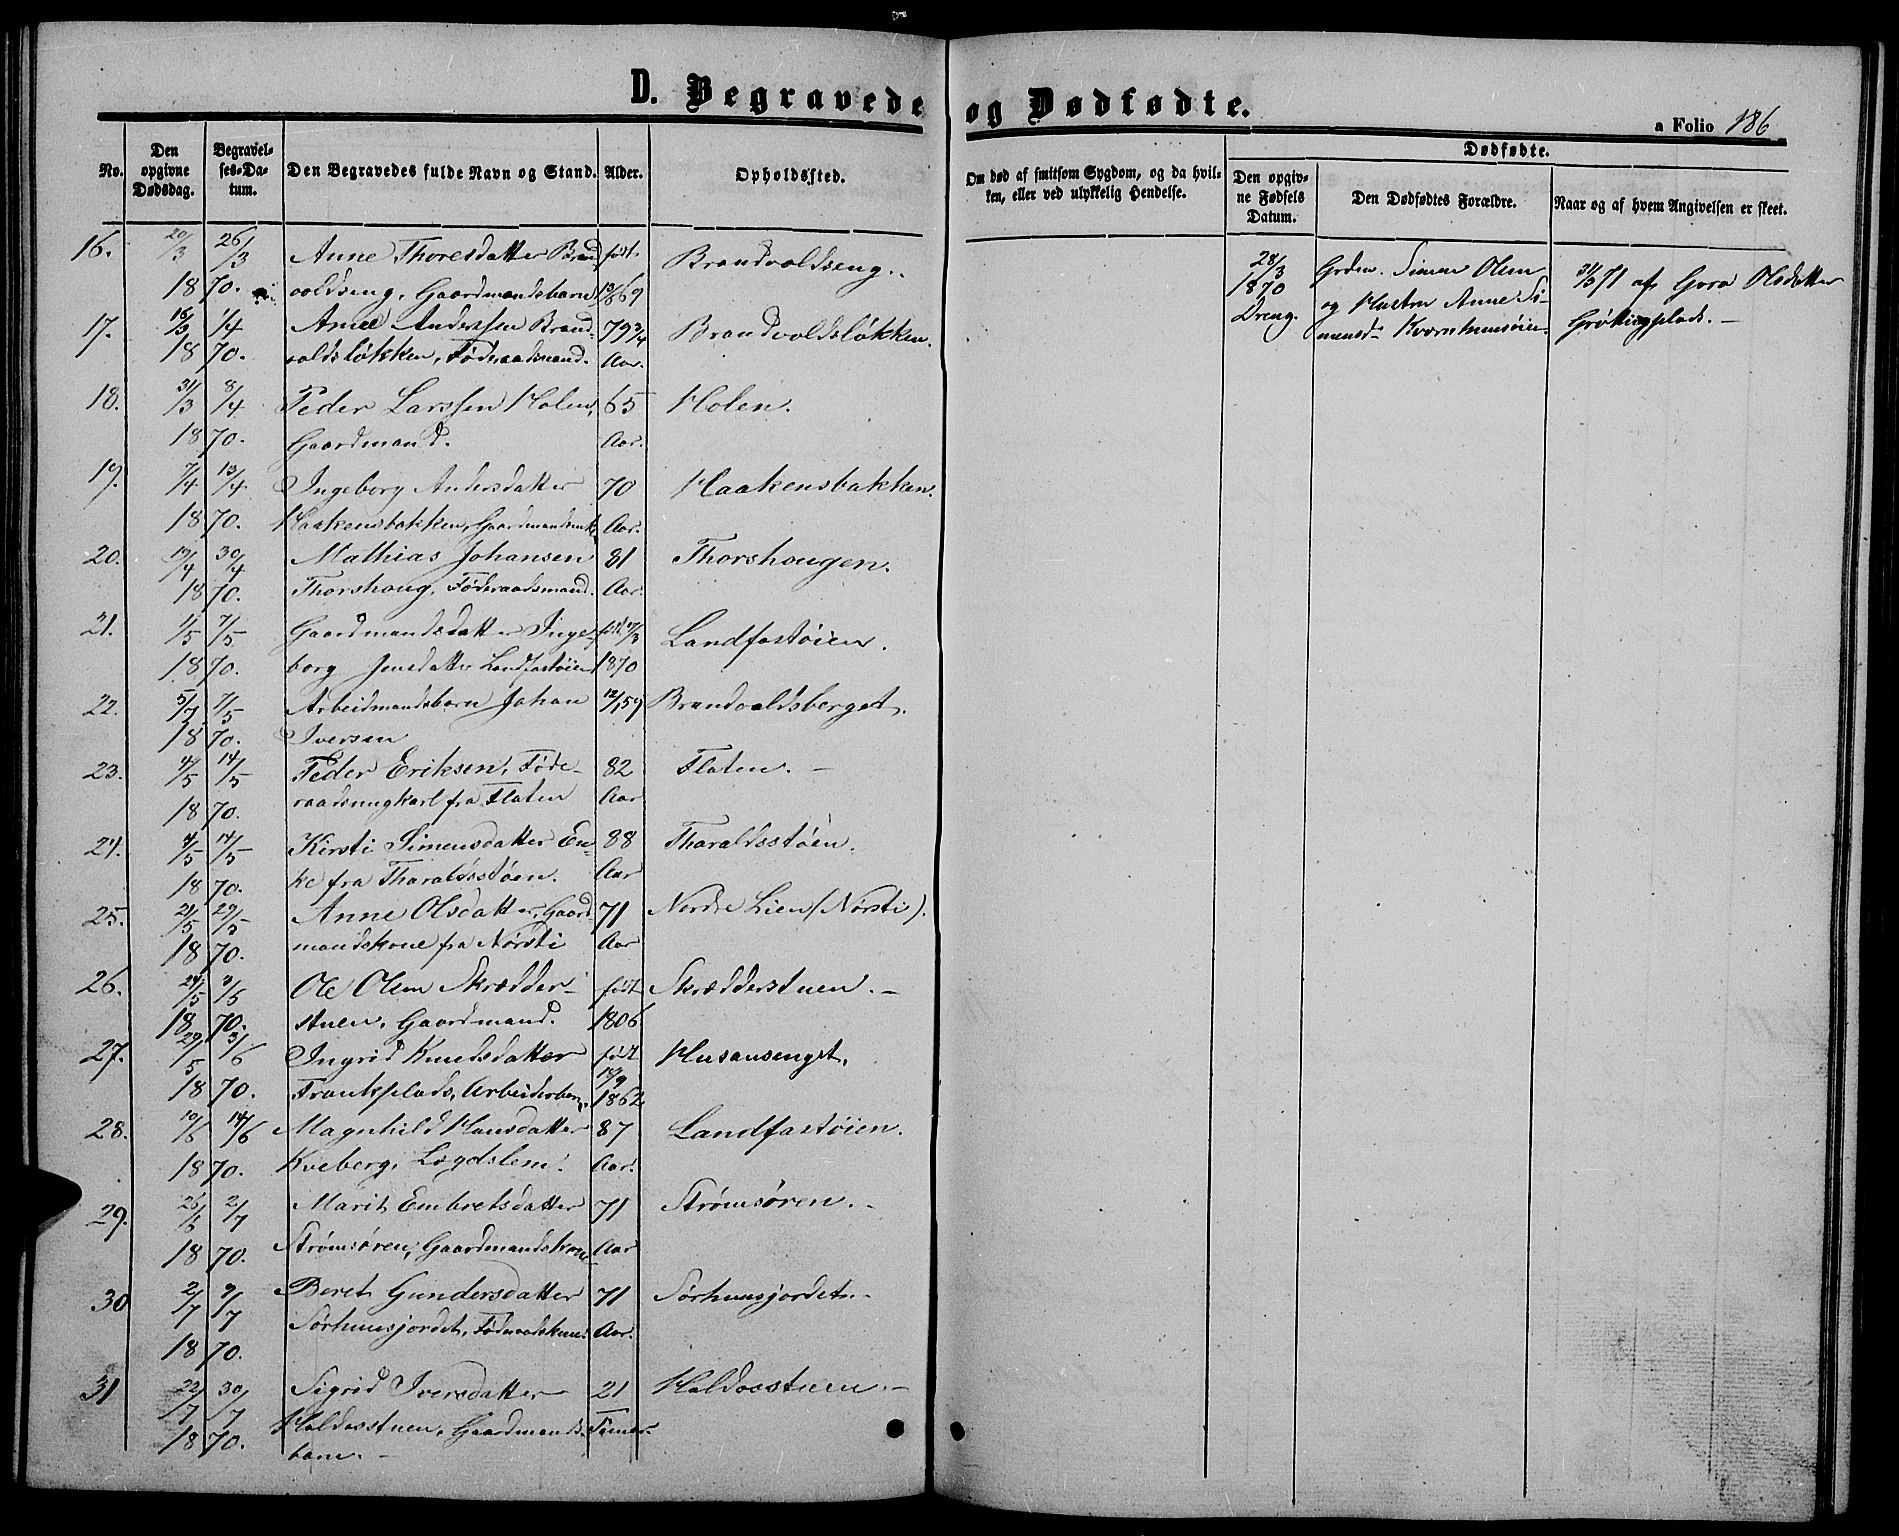 D. Begravede og Dødfødte.
a Folio 186
No.
Den opgivne Dødsdag.
Begravelses-Datum.
Den Begravedes fulde Navn og Stand.
Alder.
Opholdssted.
Om død af smitsom Sygdom, og da hvilken, eller ved ulykkelig Hendelse.
Dødfødte.
Den opgivne Fødsels Datum.
Den Dødfødtes Forældre.
Naar og af hvem Angivelsen er skeet.
16. 20/3 26/3 Anne Thoresdatter Brand født Brandvoldseng.
18 70. voldseng, Gaardmandsbarn 13/8 69
17. 16/3 1/4 Anders Brand- 79 3/4 Brandvoldsløkken.
18 70. voldsløkken, Føderaadsmand. Aar.
18. 31/3 8/4 Peder Larssen Holen, 65 Holen.
18 70. Gaardmand. Aar.
19. 7/4 13/4 Ingeborg Andersdatter 70 Haakensbakken.
18 70. Haakensbakken, Aar.
20. 19/4 30/4 Mathias Johansen 81 Thorshougen.
18 70. Thorshoug, Føderaadsmand. Aar.
21. 1/5 7/5 Gaardmandsdatter Inge- født 17/3 Landfastøien.
18 70. borg Jensdatter Landfastøien 1870
22. 5/1 7/5 Arbeidmandsbarn Johan 12/1 59 Brandvoldsberget.
18 70. Iversen
23. 4/5 14/5 Peder Eriksen, Føde- 82 Flaten. -
18 70. raadsungkarl fra Flaten Aar
24. 4/5 14/5 Kirsti Simensdatter En- 88 Tharaldsstøen.
18 70. ke fra Tharaldsstøen. Aar
25. 21/5 29/5 Anne Olsdatter, Gaard- 71 Nordre Lien (Nørsti).
18 70. mandskone fra Nørsti Aar
26. 24/5 3/6 Ole Olsen Skrædder- født Skrædderstuen. -
18 70. stuen, Gaardmand. 1806
27. 29/5 3/6 Ingrid Knudsdatter født Husansenget.
18 70. Frankplads, 18/9 1862
28. 10/6 14/6 Magnhild Hansdatter 87 Landfastøien.
18 70. Kveberg, Lægdslem. Aar.
29. 26/6 2/7 Marit Embretsdatter 71 Strømsøren. -
18 70. Strømsøren, Gaardmandskone Aar
30 2/7 9/7 Beret Gundersdatter 71 Sørhuusjordet. -
18 70. Sørhuusjordet, Aar.
31 22/7 30/7 Sigrid Iversdatter 21 Haldosstuen. -
18 70. Haldosstuen, Gaardmands- Timer.
barn. -
28/3 Grdm. Simen Olsen 31/3 71 af Gora Olsdatter
1870 og Hustru Anne Si- Grøtingplads. -
Dreng. mensd. Kværnhuusøien.